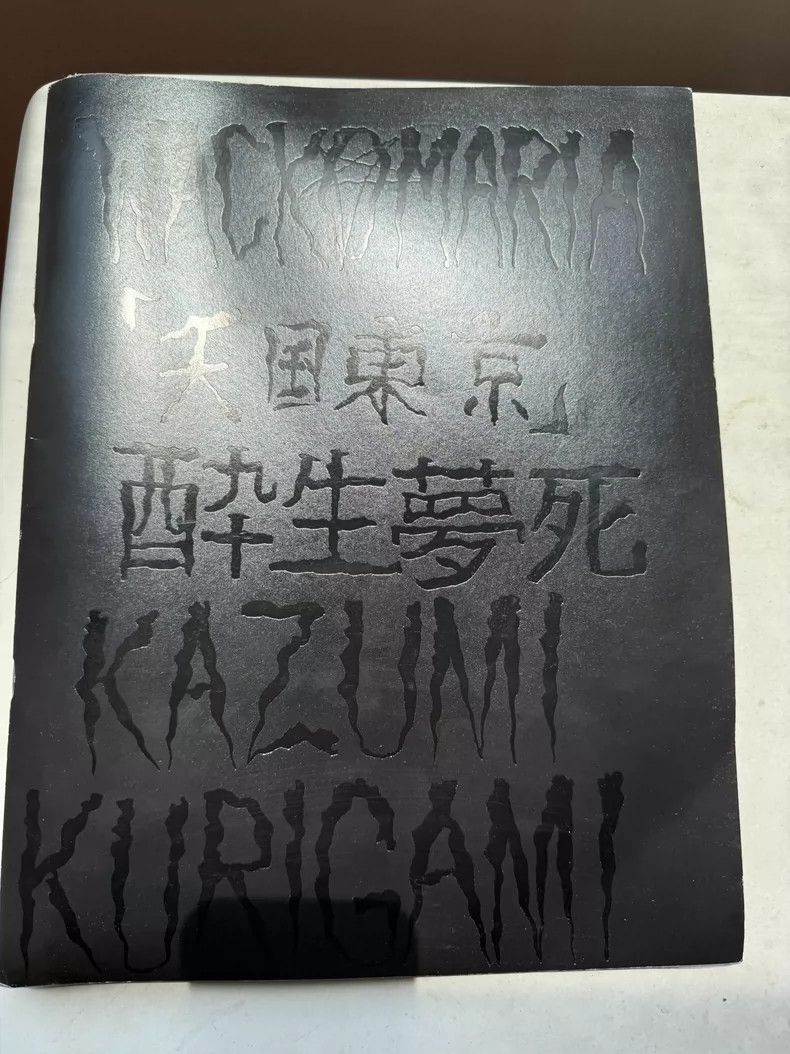 WACKOMARIA
「天国東京」
酔生夢死
KAZUMI
KURIGAMI